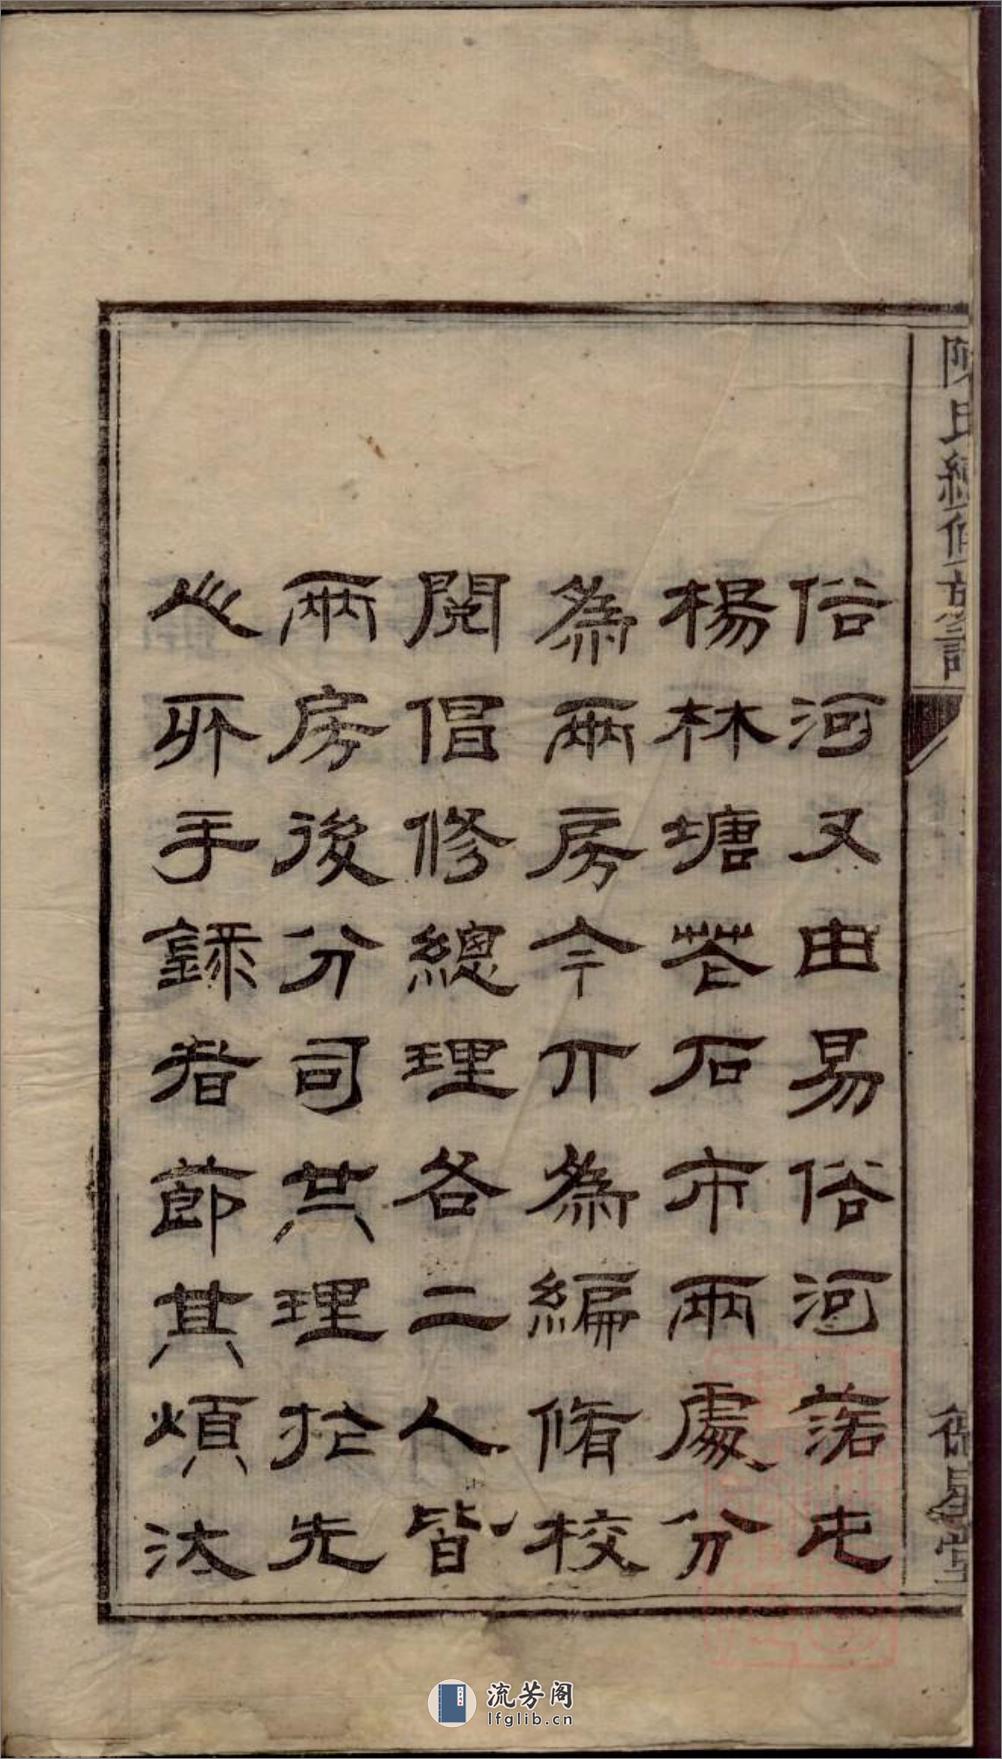 俗河又由易俗河蕩屯
楊林塘茫石市兩處分
為兩房今介為編脩校
閱倡修總理各二人皆
兩房後分司共理於先
人所手錄者節其煩汰
陳氏續修族譜
德星堂
流芳阁
lfglib.cn